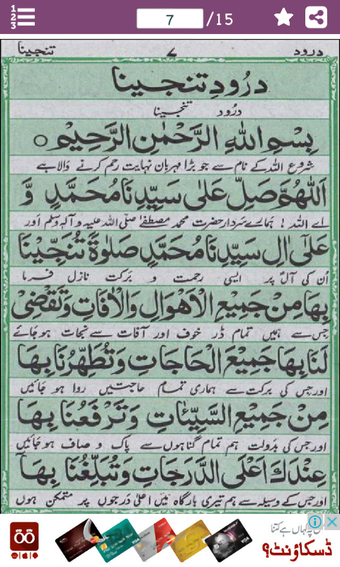 7 /15
درود ۷ تنجینا
درود تنجینا
درود تنجینا
بِسْمِ اللهِ الرَّحْمٰنِ الرَّحِيْمِ
شروع اللہ کے نام سے جو بڑا مہربان نہایت رحم کرنے والا ہے
اَللّٰهُمَّ صَلِّ عَلٰى سَيِّدِنَا مُحَمَّدٍ وَّ
اے اللہ! ہمارے سردار حضرت محمد مصطفےٰ صلی اللہ علیہ وآلہ وسلم اور
عَلٰٓى اٰلِ سَيِّدِنَا مُحَمَّدٍ صَلٰوةً تُنَجِّيْنَا
اُن کی آل پر ایسی رحمت و برکت نازل فرما
بِهَا مِنْ جَمِيْعِ الْاَهْوَالِ وَالْاٰفَاتِ وَتَقْضِىْ
جس سے ہمیں تمام ڈر خوف اور آفات سے نجات ہو جائے
لَنَا بِهَا جَمِيْعَ الْحَاجَاتِ وَتُطَهِّرُنَا بِهَا
اور جس کی برکت سے ہماری تمام حاجتیں روا ہو جائیں
مِنْ جَمِيْعِ السَّيِّئَاتِ وَتَرْفَعُنَا بِهَا
اور جس کی بدولت ہم تمام گناہوں سے پاک و صاف ہو جائیں
عِنْدَكَ اَعْلَى الدَّرَجَاتِ وَتُبَلِّغُنَا بِهَا
اور جس کے وسیلہ سے ہم تیری بارگاہ میں اعلیٰ درجوں پر متمکن ہوں
ڈسکاؤنٹ؟